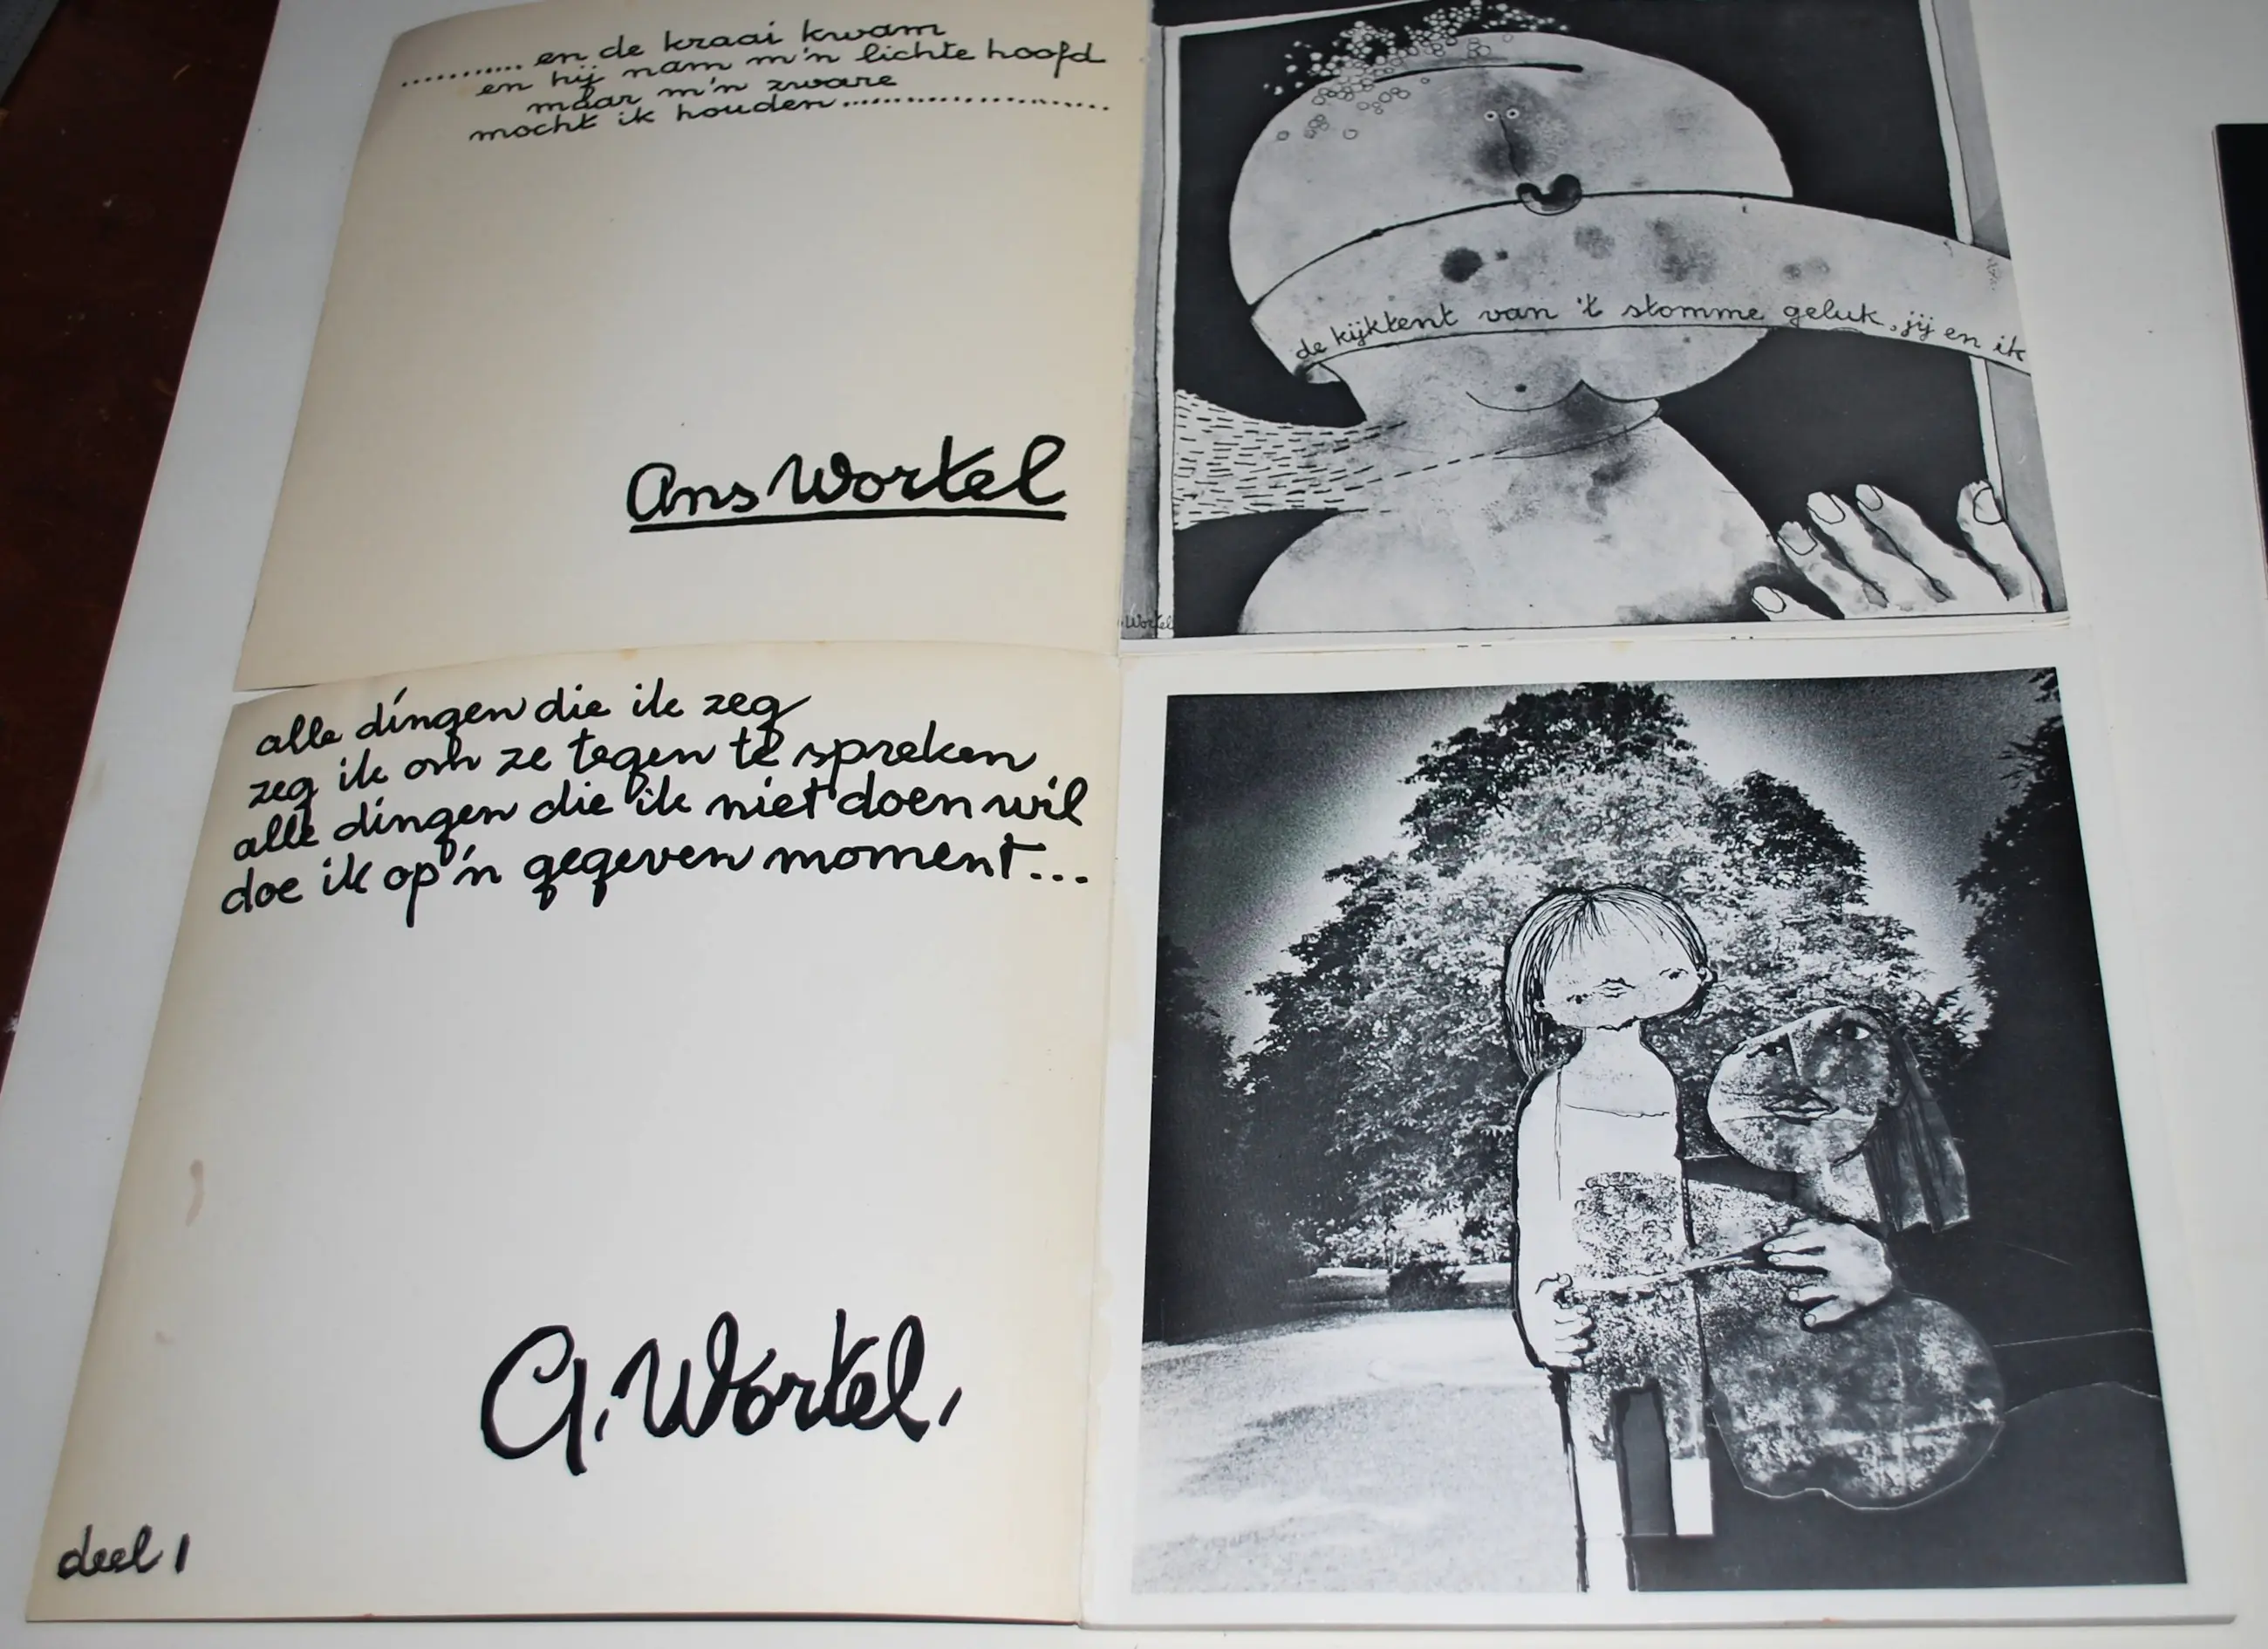 ........... en de kraai kwam
en hij nam m'n lichte hoofd
maar m'n zware
mocht ik houden........................
Ans Wortel
de kijktent van 't stomme geluk, jij en ik
Wortel
alle dingen die ik zeg
zeg ik om ze tegen te spreken
alle dingen die ik niet doen wil
doe ik op 'n gegeven moment...
A. Wortel.
deel 1